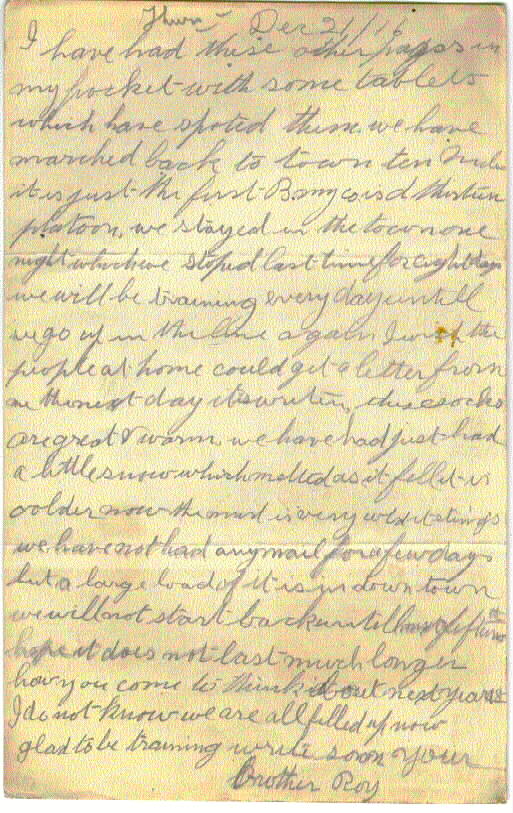 Thurs Dec 21/16
I have had these other pages in
my pocket with some tablets
which have spoted them. we have
marched back to town ten
it is just the first B thirteen
platoon, we stayed in the town one
night which we stoped last time for eight days
we will be training every day untill
we go up in the line again I wish the
people at home could get a letter from
me the next day its writen, these socks
are great & warm. we have had just had
a little snow which melted as it fell it is
colder now the mud is very cold it stings
we have not had any mail for a few days
but a large load of it is in down town
we will not start back untill
hope it does not last much longer
how you come to think it out next year
I do not know we are all filled up now
glad to be training write soon your
Brother Roy